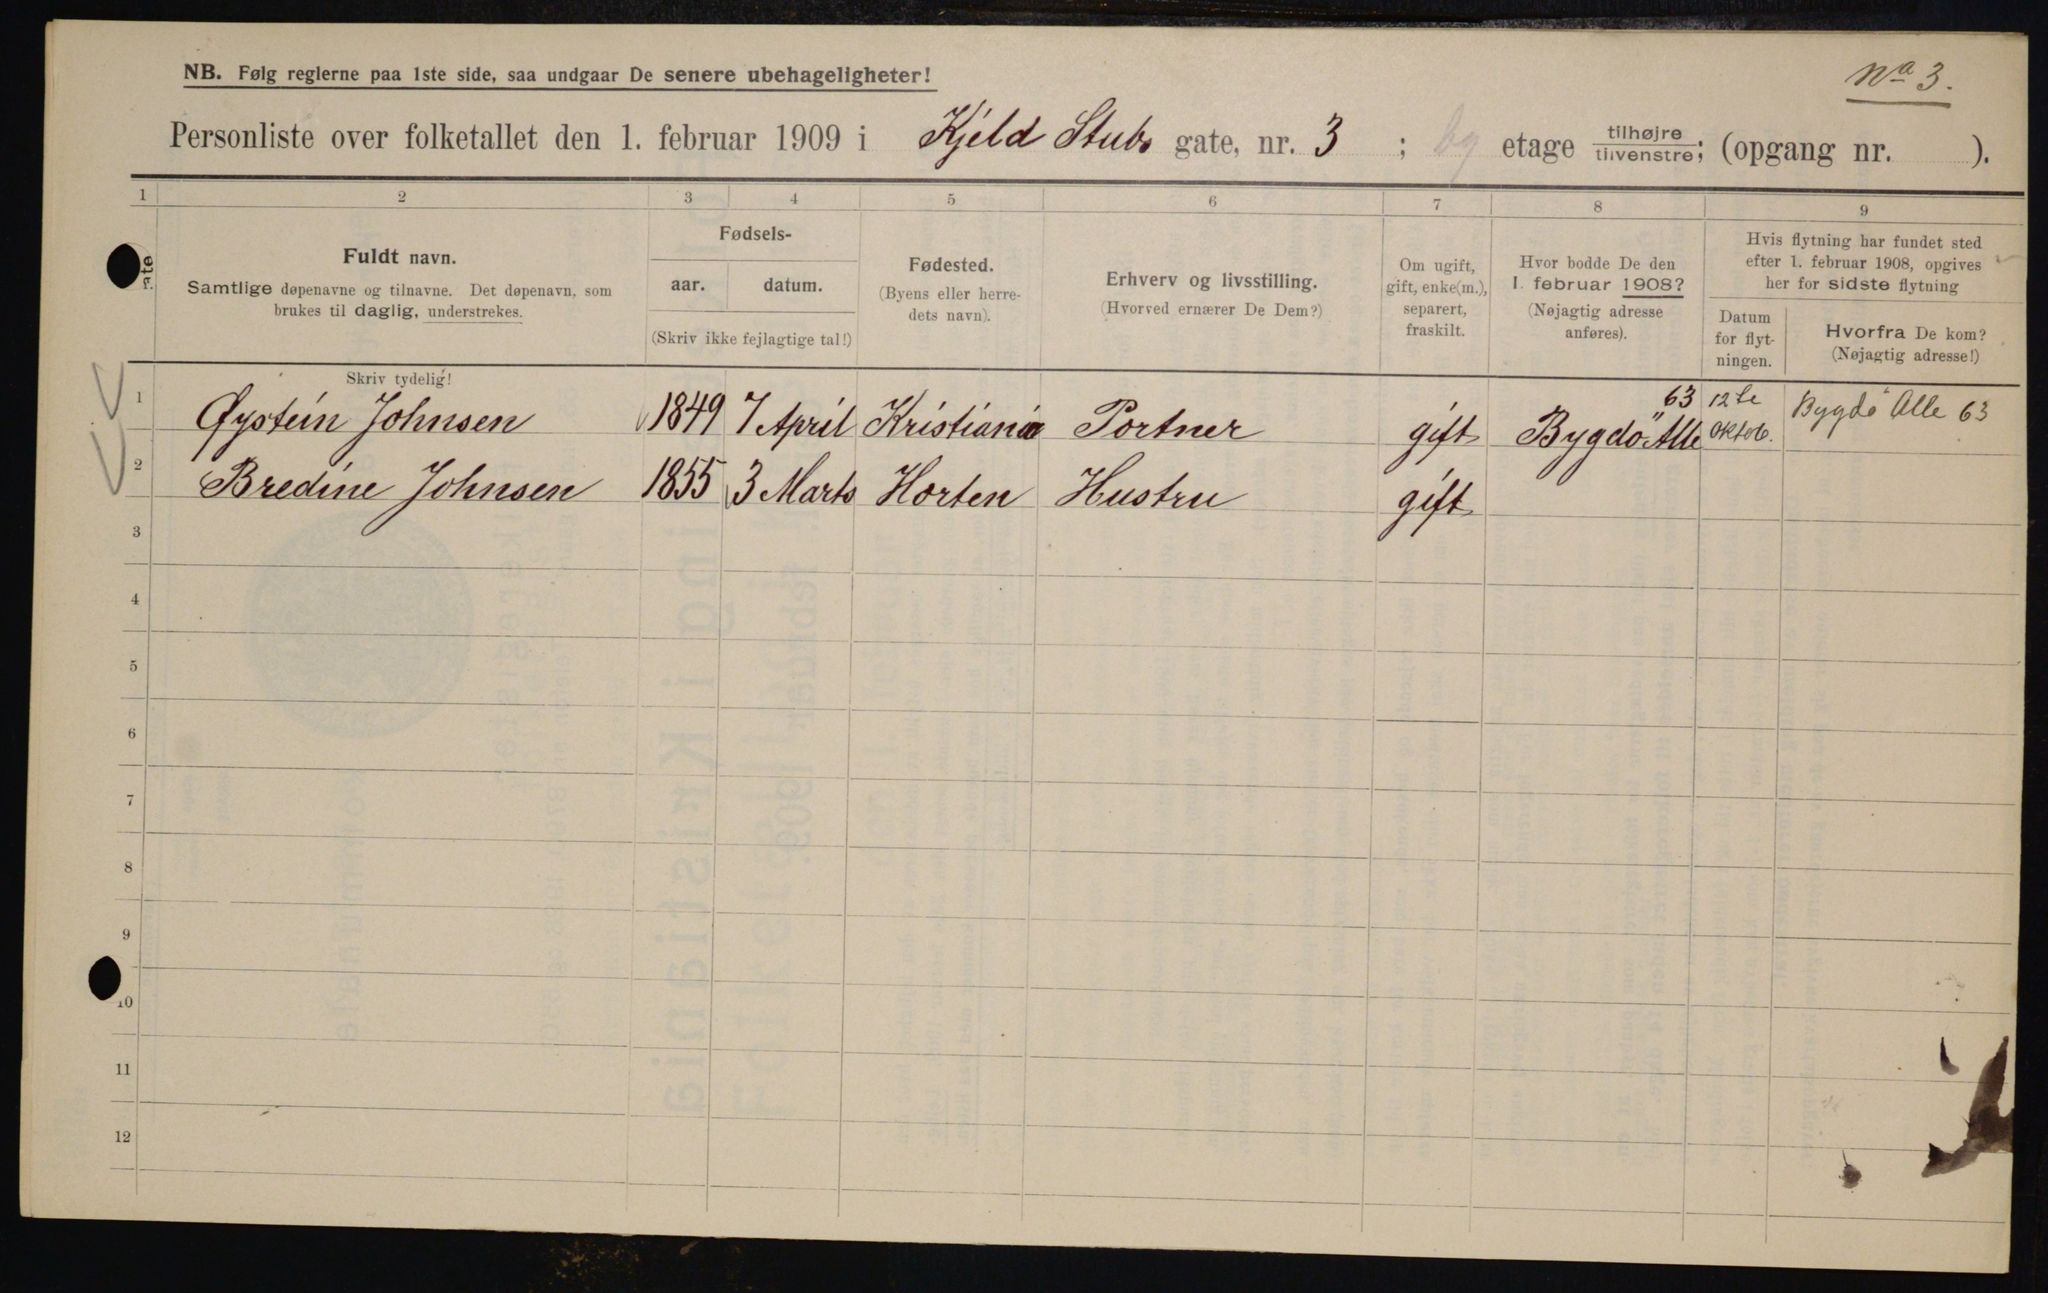 No 3.
NB. Følg reglerne paa 1ste side, saa undgaar De senere ubehageligheter!
Personliste over folketallet den 1. februar 1909 i Kjeld Stubs gate, nr. 3 ; etage tilhøjre/tilvenstre; (opgang nr. ).
1 2 3 4 5 6 7 8 9
Fuldt navn.
Samtlige døpenavne og tilnavne. Det døpenavn, som
brukes til daglig, understrekes.
Skriv tydelig!
Fødsels-
aar. datum.
(Skriv ikke fejlagtige tal!)
Fødested.
(Byens eller herre-
dets navn).
Erhverv og livsstilling.
(Hvorved ernærer De Dem?)
Om ugift,
gift, enke(m.),
separert,
fraskilt.
Hvor bodde De den
1. februar 1908?
(Nøjagtig adresse
anføres).
Hvis flytning har fundet sted
efter 1. februar 1908, opgives
her for sidste flytning
Datum
for flyt-
ningen.
Hvorfra De kom?
(Nøjagtig adresse!)
1 Øystein Johnsen 1849 7 April Kristiania Portner gift Bygdö Alle 63 12te Oktob. Bygdö Alle 63
2 Bredine Johnsen 1855 3 Marts Horten Hustru gift
3
4
5
6
7
8
9
10
11
12